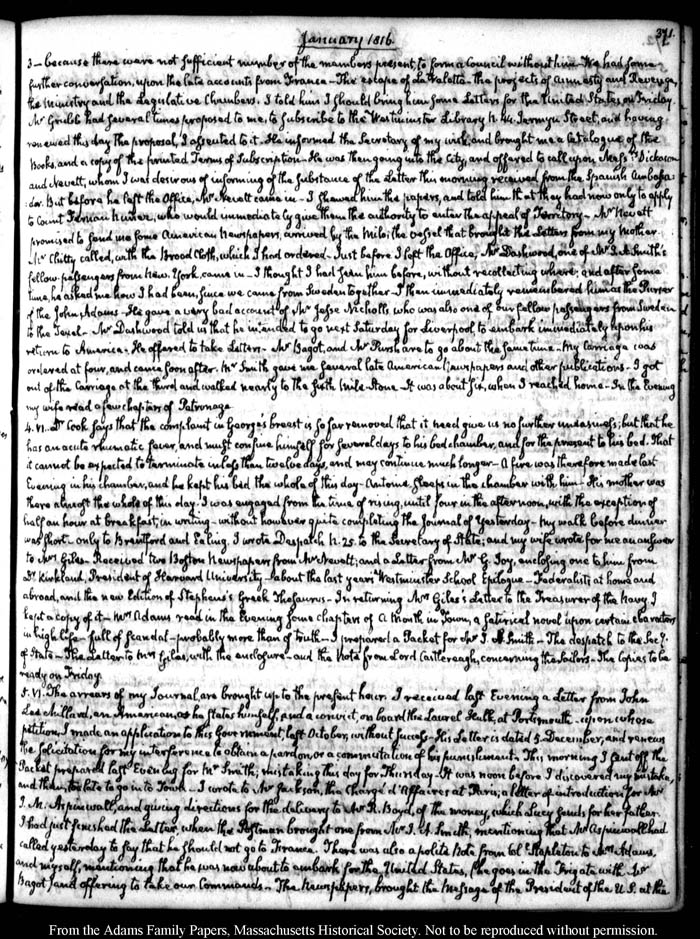 January 1816.
371.
3 — because there were not sufficient number of the members present, to form a Council without him — We had some
further conversation, upon the late accounts from France — The escape of La Valette — the projects of amnesty and Revenge,
the Ministry and the Legislative Chambers. I told him I should bring him some Letters for the United States on Friday.
Mr Grubb had several times proposed to me, to subscribe to the Westminster Library N. 44. Jermyn Street, and having
renewed this day the proposal, I assented to it. He informed the Secretary of my wish, and brought me a Catalogue of the
Books, and a copy of the printed Terms of Subscription — He was then going into the City, and offered to call upon Mess.rs Dickason
and Nevett, whom I was desirous of informing of the substance of the Letter this morning received from the Spanish Ambassa-
:dor. But before he left the Office, Mr Nevett came in — I shewed him the papers, and told him that they had now only to apply
to Count Fernan Nunez, who would immediately give them the authority to enter the appeal of Territory — Mr Nevett
promised to send me some American Newspapers, arrived by the Milo; the vessel that brought the Letters from my Mother.
Mr Chitty called, with the Broad Cloth, which I had ordered. Just before I left the Office, Mr Dashwood, one of Mr J. A. Smith's
fellow passengers from New York, came in — I thought I had seen him before, without recollecting where; and after some
time, he asked me how I had been, since we came from Sweden together — I then immediately remembered him as the Purser
of the John Adams — He gave a very bad account of Mr Jesse Nicholls, who was also one of our fellow passengers from Sweden
to the Texel — Mr Dashwood told us that he intended to go next Saturday for Liverpool, to embark immediately upon his
return to America. He offered to take Letters — Mr Bagot, and Mr Pursh are to go about the same time — My carriage was
ordered at four, and came soon after. Mr Smith gave me several late American Newspapers and other publications — I got
out of the Carriage at the third and walked nearly to the sixth Mile-stone — It was about six, when I reached home — In the Evening
my wife read a few chapters of Patronage
4. VI. Dr Cook says that the complaint in George's breast is so far removed that it need give us no further uneasiness; but that he
has an acute rheumatic fever, and must confine himself for several days to his bed chamber, and for the present to his bed. That
it cannot be expected to terminate in less than twelve days, and may continue much longer — A fire was therefore made last
Evening in his chamber, and he kept his bed the whole of this day — Antoine sleeps in the chamber with him — His mother was
there almost the whole of this day. I was engaged from the time of rising, until four in the afternoon, with the exception of
half an hour at breakfast, in writing — without however quite completing the Journal of Yesterday — My walk before dinner
was short — only to Brentford and Ealing. I wrote Despatch N. 25. to the Secretary of State; and my wife wrote for me an answer
to Mrs Giles. Received two Boston Newspapers from Mr Nevett; and a Letter from Mr G. Joy, enclosing one to him from
Dr. Kirkland, President of Harvard University — about the last years Westminster School Epilogue — Federalists at home and
abroad, and the new Edition of Stephens's Greek Thesaurus — In returning Mrs Giles's Letter to the Treasurer of the Navy, I
kept a copy of it — Mrs Adams read in the Evening some chapters of A Month in Town, a satirical novel upon certain characters
in high life — full of scandal — probably more than of truth — I prepared a Packet for Mr J. A. Smith — The despatch to the Sec.y
of State — The Letter to Mrs Giles, with the enclosure — and the Note from Lord Castlereagh, concerning the Sailors — The Copies to be
ready on Friday.
5. VI. The arrears of my Journal are brought up to the present hour. I received last Evening a Letter from John
Lee Millard, an American, as he states himself, and a convict, on board the Laurel Hulk, at Portsmouth — upon whose
petition, I made an application to this Government, last October, without success — His Letter is dated 5. December, and renews
the solicitation for my interference to obtain a pardon, or a commutation of his punishment — This morning I sent off the
Packet prepared last Evening for Mr Smith; mistaking this day for Thursday — It was noon before I discovered my mistake,
and then, too late to go into Town — I wrote to Mr Jackson, the Chargé d'Affaires at Paris; a letter of introduction for Mr
I. M. Aspinwall, and giving directions for the delivery to Mr R. Boyd, of the money, which Lucy sends for her father.
I had just finished the Letter, when the Postman brought one from Mr J. A. Smith, mentioning that Mr Aspinwall had
called yesterday to say that he should not go to France. There was also a polite Note from Col.l Stapleton to Mrs Adams,
and myself, mentioning that he was now about to embark for the United States, (he goes in the Frigate with Mr
Bagot) and offering to take our Commands — The Newspapers, brought the Message of the President of the U.S. at the
From the Adams Family Papers, Massachusetts Historical Society. Not to be reproduced without permission.